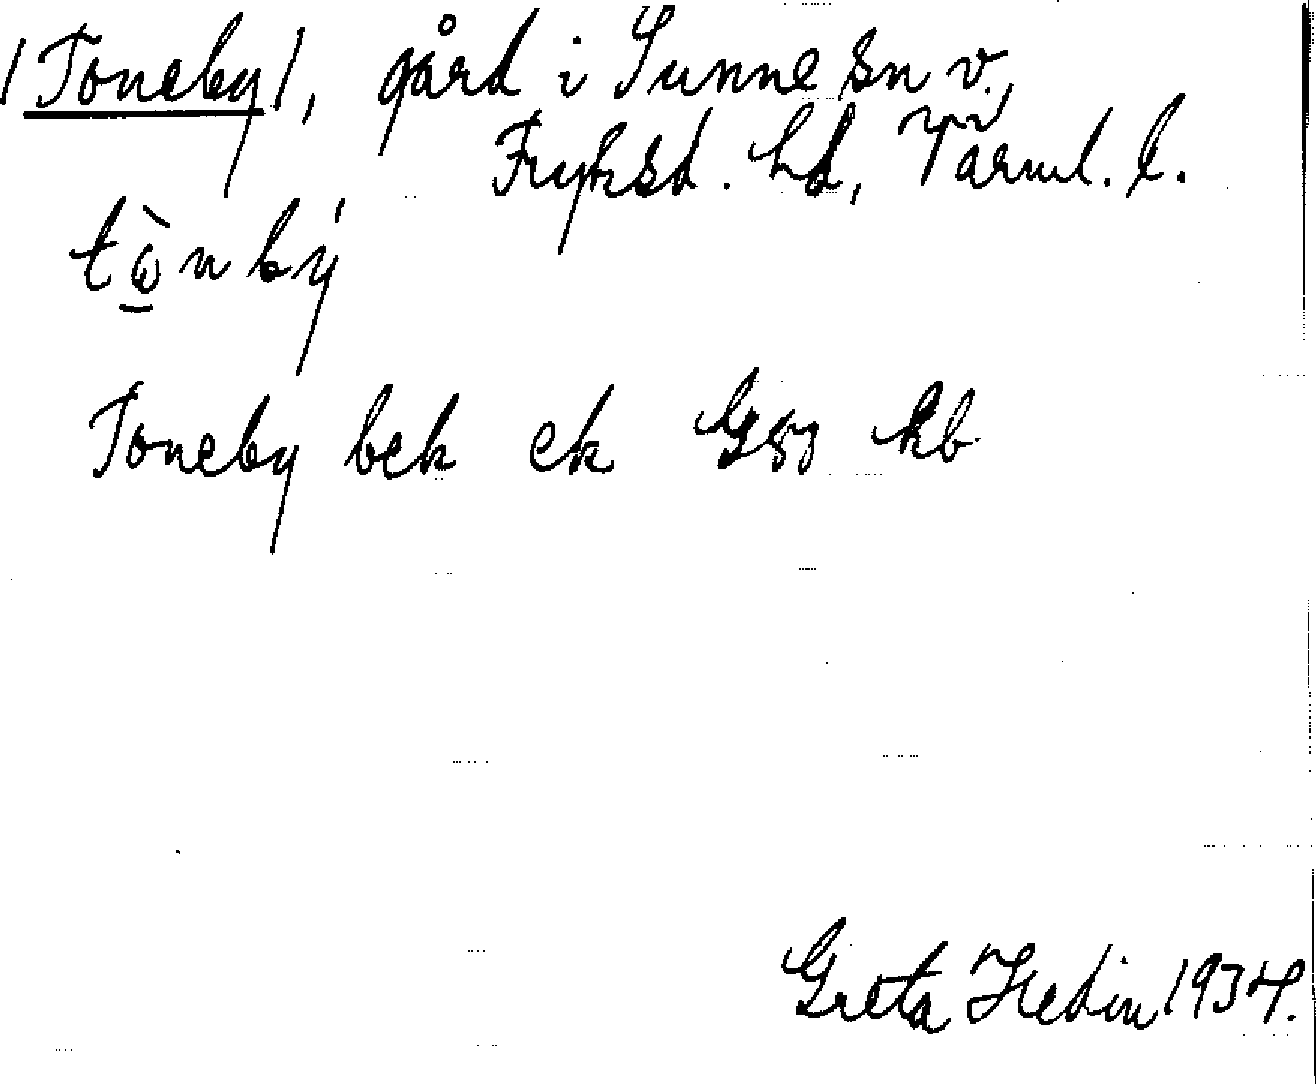 /Toneby/, gård i Sunne sn v.,
Fryksd. hd, Värml. l.
tὼ̱nbý
Toneby bek ek Gsg kb
Greta Hedin 1934.